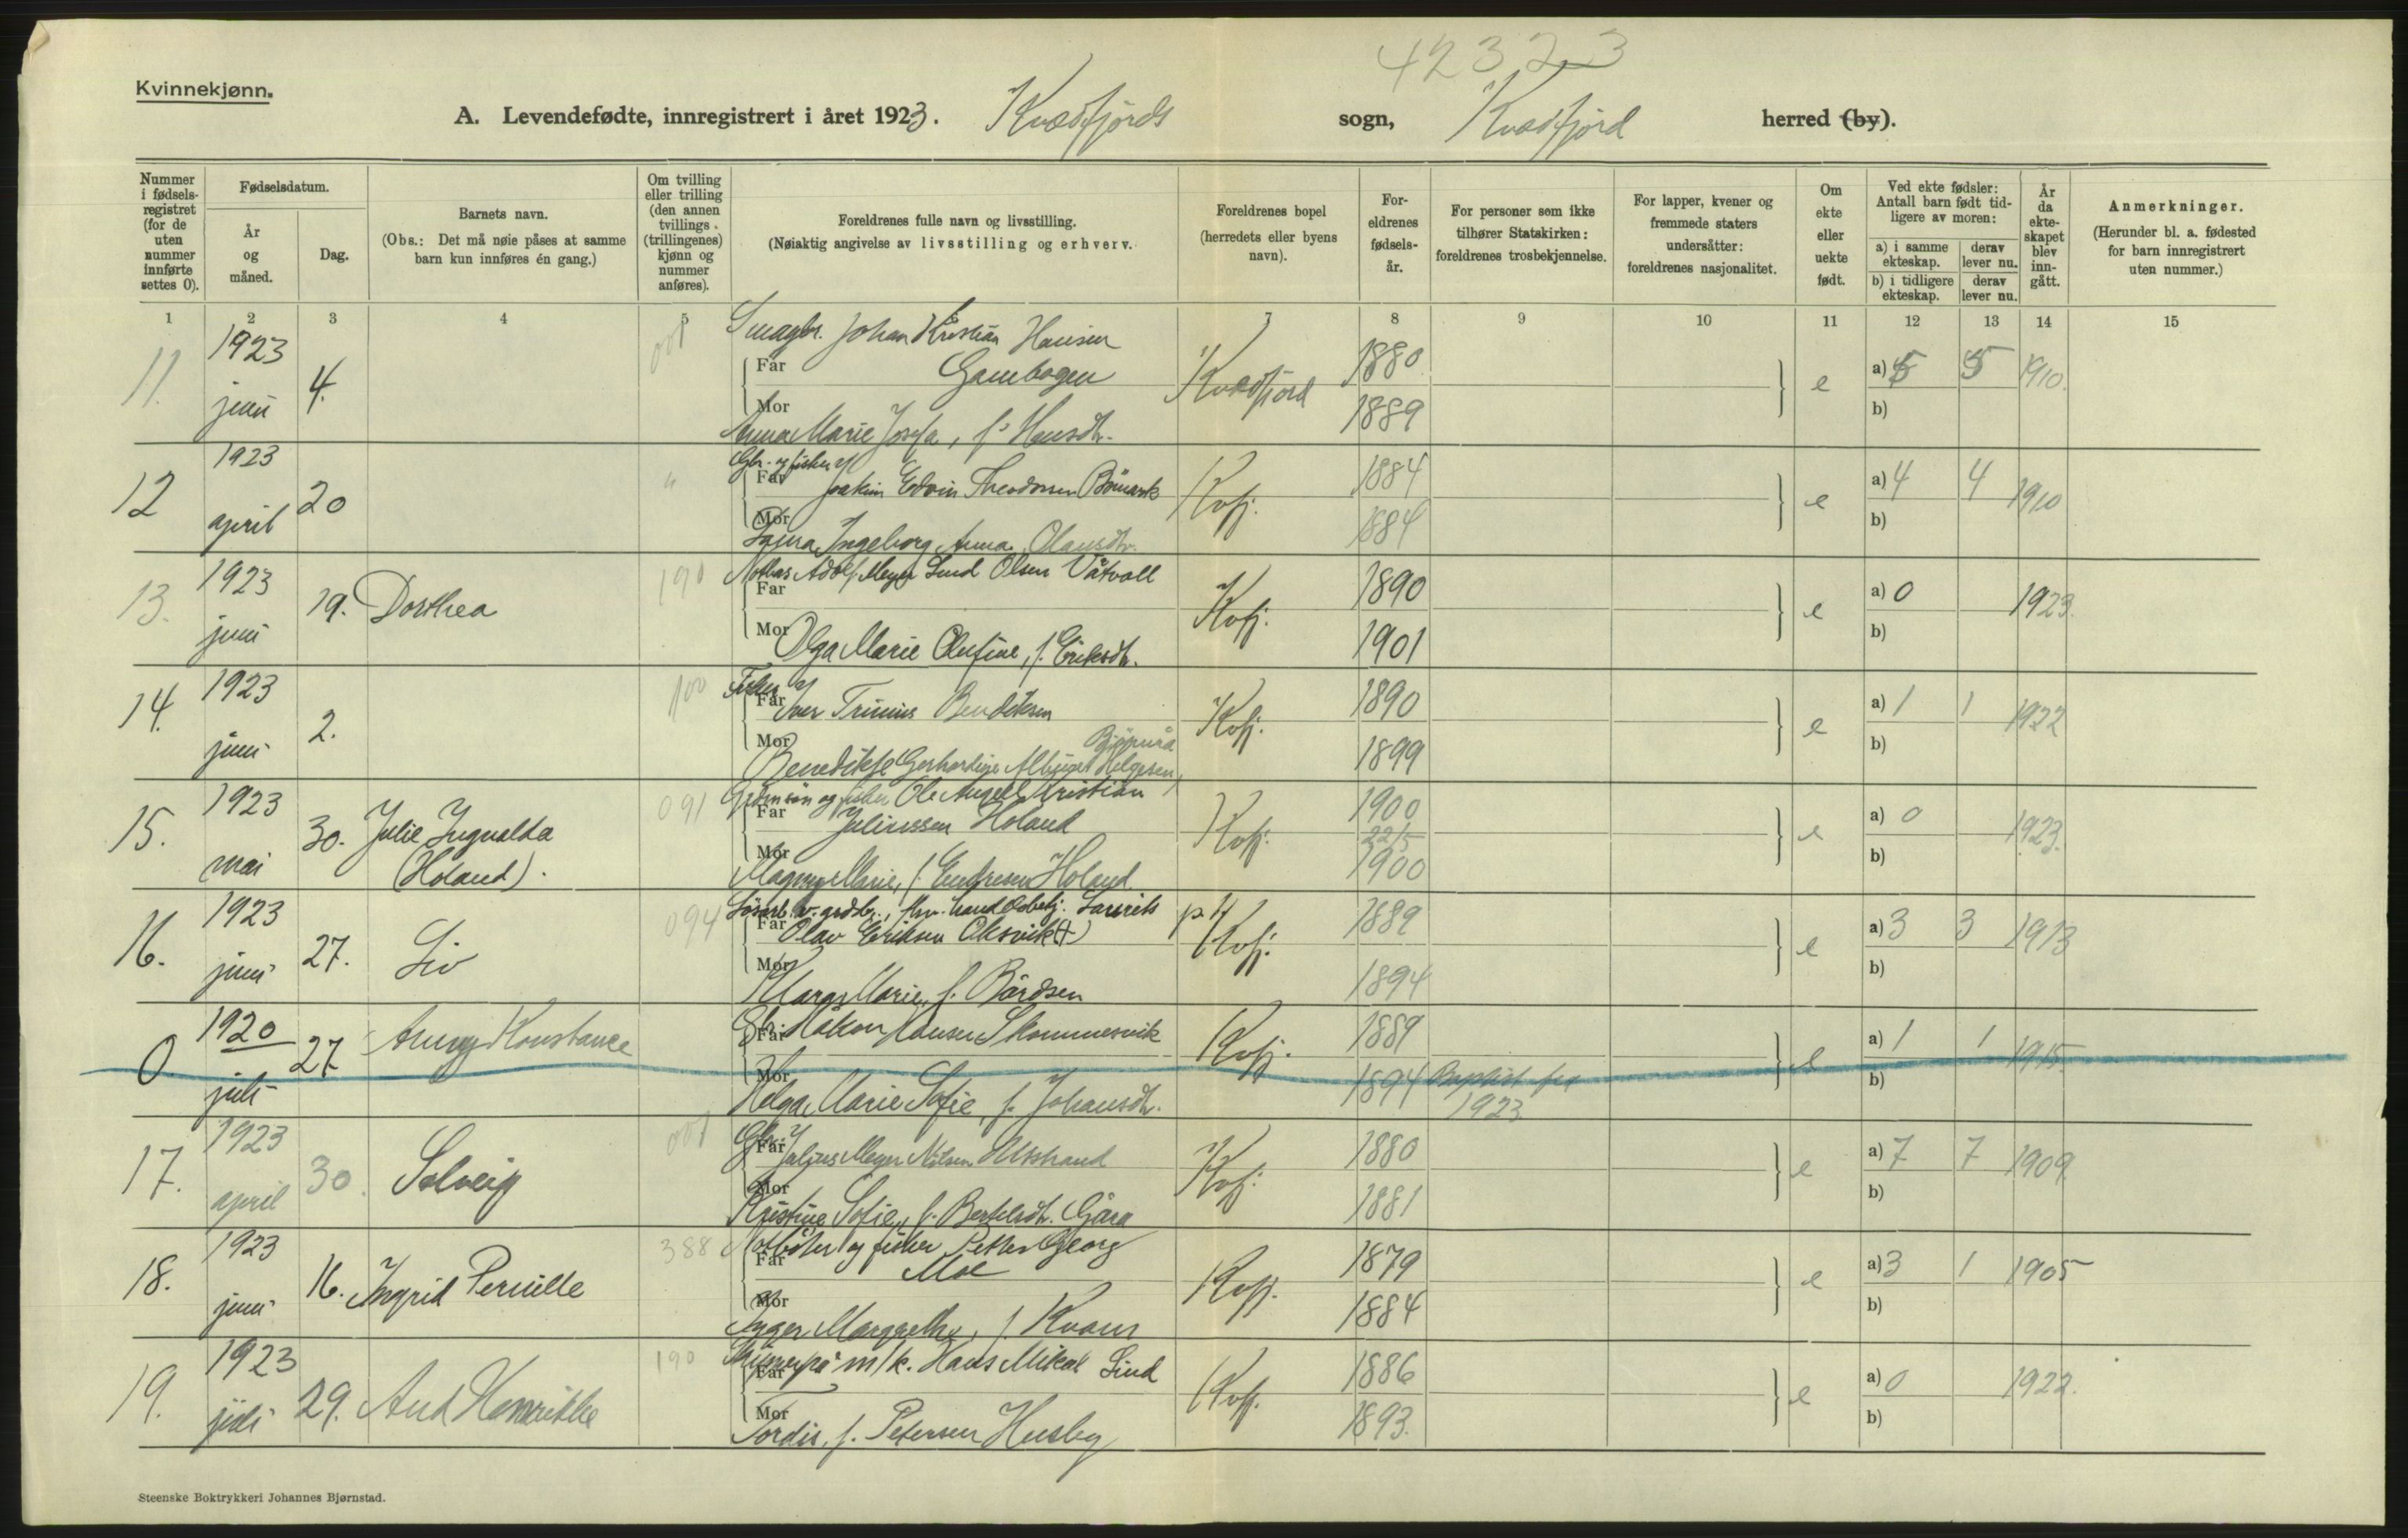 42323
Kvinnekjønn.
A. Levendefødte, innregistrert i året 1923. Kvædfjords sogn, Kvædfjord herred (by).
Nummer i fødsels-registret (for de uten nummer innførte settes 0).
Fødselsdatum.
År og måned.
Dag.
Barnets navn.
(Obs.: Det må nøie påses at samme barn kun innføres én gang.)
Om tvilling eller trilling (den annen tvillings (trillingenes) kjønn og nummer anføres).
Foreldrenes fulle navn og livsstilling.
(Nøiaktig angivelse av livsstilling og erhverv.
Foreldrenes bopel (herredets eller byens navn).
For-eldrenes fødsels-år.
For personer som ikke tilhører Statskirken: foreldrenes trosbekjennelse.
For lapper, kvener og fremmede staters undersåtter: foreldrenes nasjonalitet.
Om ekte eller uekte født.
Ved ekte fødsler: Antall barn født tid-ligere av moren:
a) i samme ekteskap. derav lever nu.
b) i tidligere ekteskap. derav lever nu.
År da ekte-skapet blev inn-gått.
Anmerkninger.
(Herunder bl. a. fødested for barn innregistrert uten nummer.)
1 2 3 4 5 6 7 8 9 10 11 12 13 14 15
11. 1923 juni 4. 001
Smagbr. Johan Kristian Hansen
Far Gambogen Kvædfjord 1880 e a) 5 5 1910.
Mor 1889 b)
Anna Marie Josefa, f. Hansdtr.
12 1923 april 20 "
Gbr. og fisker
Far Joakim Edvin Theodorsen Bømark Kvfj. 1884 e a) 4 4 1910
Mor 1884 b)
Laura Ingeborg Anna Olausdtr.
13. 1923 juni 19. Dorthea 190
Notbas Adolf Meyer Lind Olsen Våtvoll
Far Kvfj. 1890 e a) 0 1923.
Mor Olga Marie Olufine, f. Eriksdtr. 1901 b)
14. 1923 juni 2. 100
Fisker
Far Iver Trinius Bendiksen Kvfj. 1890 e a) 1 1 1922
Mor 1899 b)
Benedikte Gerhardine Helgesen
15. 1923 mai 30. Julie Ingvalda (Holand). 091
Grdm.søn og fisker Ole Angell Kristian
Far Juliussen Holand Kvfj. 1900 e a) 0 1923.
22/5
Mor 1900 b)
Magny Marie, f. Endresen Holand
16. 1923 juni 27. Liv 094
Far Olav Eriksen Oksvik (+) Kvfj. 1889 e a) 3 3 1913
Mor 1894 b)
Klara Marie, f. Bårdsen
0 1920 juli 27 Anny Konstance
Gbr. Håkon Hansen Skommesvik
Far Kvfj. 1889 e a) 1 1 1915
Mor 1894 Baptist fra 1923 b)
Helga Marie Sofie, f. Johansdtr.
17. 1923 april 30. Solveig 001
Gbr.
Far Julius Meyer Nilsen Utstrand Kvfj. 1880 e a) 7 7 1909
Mor 1881 b)
Kristine Sofie, f. Bertelsdtr. Gåra
18. 1923 juni 16. Ingrid Pernille 388
Notbøter og fisker Petter Georg
Far Moe Kvfj. 1879 e a) 3 1 1905
Mor 1884 b)
Inger Margrethe, f. Kvam
19. 1923 juli 29. Aud Henrikke 190
på m/k. Hans Mikal Lind
Far Kvfj. 1886 e a) 0 1922.
Mor 1893. b)
Tordis, f. Petersen Husby
Steenske Boktrykkeri Johannes Bjørnstad.